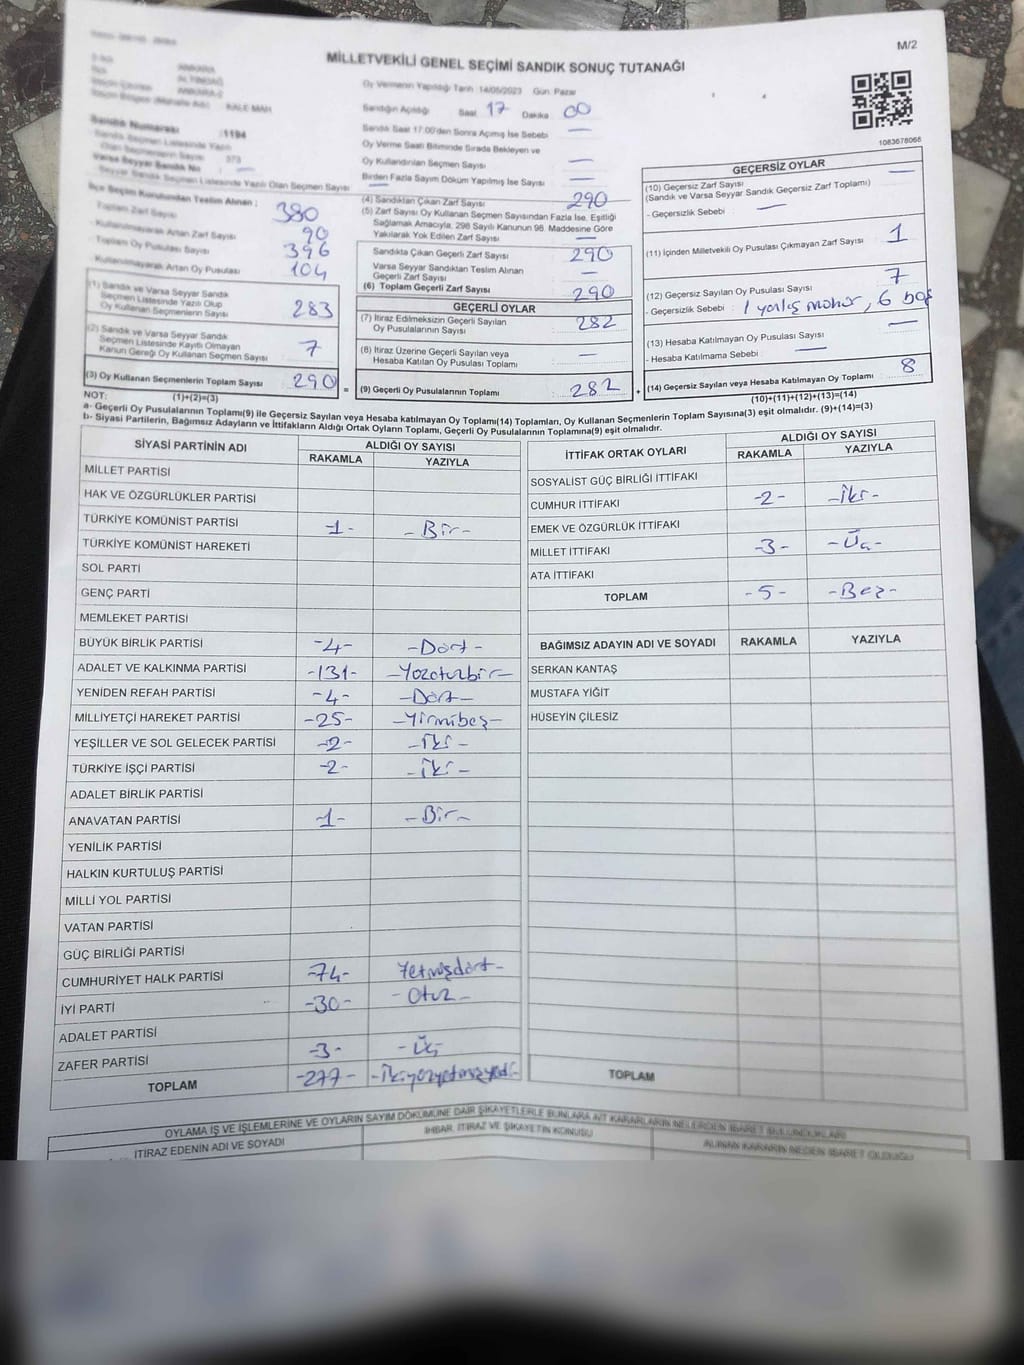 M/2
MİLLETVEKİLİ GENEL SEÇİMİ SANDIK SONUÇ TUTANAĞI
ANKARA
ALTINDAĞ
ANKARA-2
KALE MAH
Sandık Numarası :1194
Sandık Seçmen Listesinde Yazılı Olan Seçmen Sayısı : 373
Varsa Seyyar Sandık No
Seyyar Sandık Seçmen Listesinde Yazılı Olan Seçmen Sayısı
İlçe Seçim Kurulundan Teslim Alınan ;
Toplam Zarf Sayısı 380
- Kullanılmayarak Artan Zarf Sayısı 90
- Toplam Oy Pusulası Sayısı 396
- Kullanılmayarak Artan Oy Pusulası 104
(1) Sandık ve Varsa Seyyar Sandık Seçmen Listesinde Yazılı Olup Oy Kullanan Seçmenlerin Sayısı 283
(2) Sandık ve Varsa Seyyar Sandık Seçmen Listesinde Kayıtlı Olmayan Kanun Gereği Oy Kullanan Seçmen Sayısı 7
(3) Oy Kullanan Seçmenlerin Toplam Sayısı 290 =
(1)+(2)=(3)
Oy Vermenin Yapıldığı Tarih :14/05/2023 Gün: Pazar
Sandığın Açıldığı Saat 17 Dakika 00
Sandık Saat 17.00'den Sonra Açılmış İse Sebebi —
Oy Verme Saati Bitiminde Sırada Bekleyen ve
Oy Kullandırılan Seçmen Sayısı —
Birden Fazla Sayım Döküm Yapılmış İse Sayısı —
(4) Sandıktan Çıkan Zarf Sayısı 290
(5) Zarf Sayısı Oy Kullanan Seçmen Sayısından Fazla İse, Eşitliği
Sağlamak Amacıyla, 298 Sayılı Kanunun 98. Maddesine Göre
Yakılarak Yok Edilen Zarf Sayısı —
Sandıkta Çıkan Geçerli Zarf Sayısı 290
Varsa Seyyar Sandıktan Teslim Alınan
Geçerli Zarf Sayısı —
(6) Toplam Geçerli Zarf Sayısı 290
GEÇERLİ OYLAR
(7) İtiraz Edilmeksizin Geçerli Sayılan
Oy Pusulalarının Sayısı 282
(8) İtiraz Üzerine Geçerli Sayılan veya
Hesaba Katılan Oy Pusulası Toplamı —
(9) Geçerli Oy Pusulalarının Toplamı 282 +
1083678068
GEÇERSİZ OYLAR
(10) Geçersiz Zarf Sayısı —
(Sandık ve Varsa Seyyar Sandık Geçersiz Zarf Toplamı)
- Geçersizlik Sebebi : —
(11) İçinden Milletvekili Oy Pusulası Çıkmayan Zarf Sayısı 1
(12) Geçersiz Sayılan Oy Pusulası Sayısı 7
- Geçersizlik Sebebi : 1 yanlış mühür, 6 boş
(13) Hesaba Katılmayan Oy Pusulası Sayısı —
- Hesaba Katılmama Sebebi : —
(14) Geçersiz Sayılan veya Hesaba Katılmayan Oy Toplamı 8
(10)+(11)+(12)+(13)=(14)
NOT:
a- Geçerli Oy Pusulalarının Toplamı(9) ile Geçersiz Sayılan veya Hesaba katılmayan Oy Toplamı(14) Toplamları, Oy Kullanan Seçmenlerin Toplam Sayısına(3) eşit olmalıdır. (9)+(14)=(3)
b- Siyasi Partilerin, Bağımsız Adayların ve İttifakların Aldığı Ortak Oyların Toplamı, Geçerli Oy Pusulalarının Toplamına(9) eşit olmalıdır.
SİYASİ PARTİNİN ADI ALDIĞI OY SAYISI
RAKAMLA YAZIYLA
MİLLET PARTİSİ
HAK VE ÖZGÜRLÜKLER PARTİSİ
TÜRKİYE KOMÜNİST PARTİSİ -1- -Bir-
TÜRKİYE KOMÜNİST HAREKETİ
SOL PARTİ
GENÇ PARTİ
MEMLEKET PARTİSİ
BÜYÜK BİRLİK PARTİSİ -4- -Dört-
ADALET VE KALKINMA PARTİSİ -131- -Yüzotuzbir-
YENİDEN REFAH PARTİSİ -4- -Dört-
MİLLİYETÇİ HAREKET PARTİSİ -25- -Yirmibeş-
YEŞİLLER VE SOL GELECEK PARTİSİ -2- -İki-
TÜRKİYE İŞÇİ PARTİSİ -2- -İki-
ADALET BİRLİK PARTİSİ
ANAVATAN PARTİSİ -1- -Bir-
YENİLİK PARTİSİ
HALKIN KURTULUŞ PARTİSİ
MİLLİ YOL PARTİSİ
VATAN PARTİSİ
GÜÇ BİRLİĞİ PARTİSİ
CUMHURİYET HALK PARTİSİ -74- Yetmişdört-
İYİ PARTİ -30- -Otuz-
ADALET PARTİSİ
ZAFER PARTİSİ -3- -Üç
TOPLAM -277- -İkiyüzyetmişyedi-
İTTİFAK ORTAK OYLARI ALDIĞI OY SAYISI
RAKAMLA YAZIYLA
SOSYALİST GÜÇ BİRLİĞİ İTTİFAKI
CUMHUR İTTİFAKI -2- -İki-
EMEK VE ÖZGÜRLÜK İTTİFAKI
MİLLET İTTİFAKI -3- -Üç-
ATA İTTİFAKI
TOPLAM -5- -Beş-
BAĞIMSIZ ADAYIN ADI VE SOYADI RAKAMLA YAZIYLA
SERKAN KANTAŞ
MUSTAFA YİĞİT
HÜSEYİN ÇİLESİZ
TOPLAM
OYLAMA İŞ VE İŞLEMLERİNE VE OYLARIN SAYIM DÖKÜMÜNE DAİR ŞİKAYETLERLE BUNLARA AİT KARARLARIN NELERDEN İBARET BULUNDUKLARI
İTİRAZ EDENİN ADI VE SOYADI İHBAR, İTİRAZ VE ŞİKAYETİN KONUSU ALINAN KARARIN NEDEN İBARET OLDUĞU